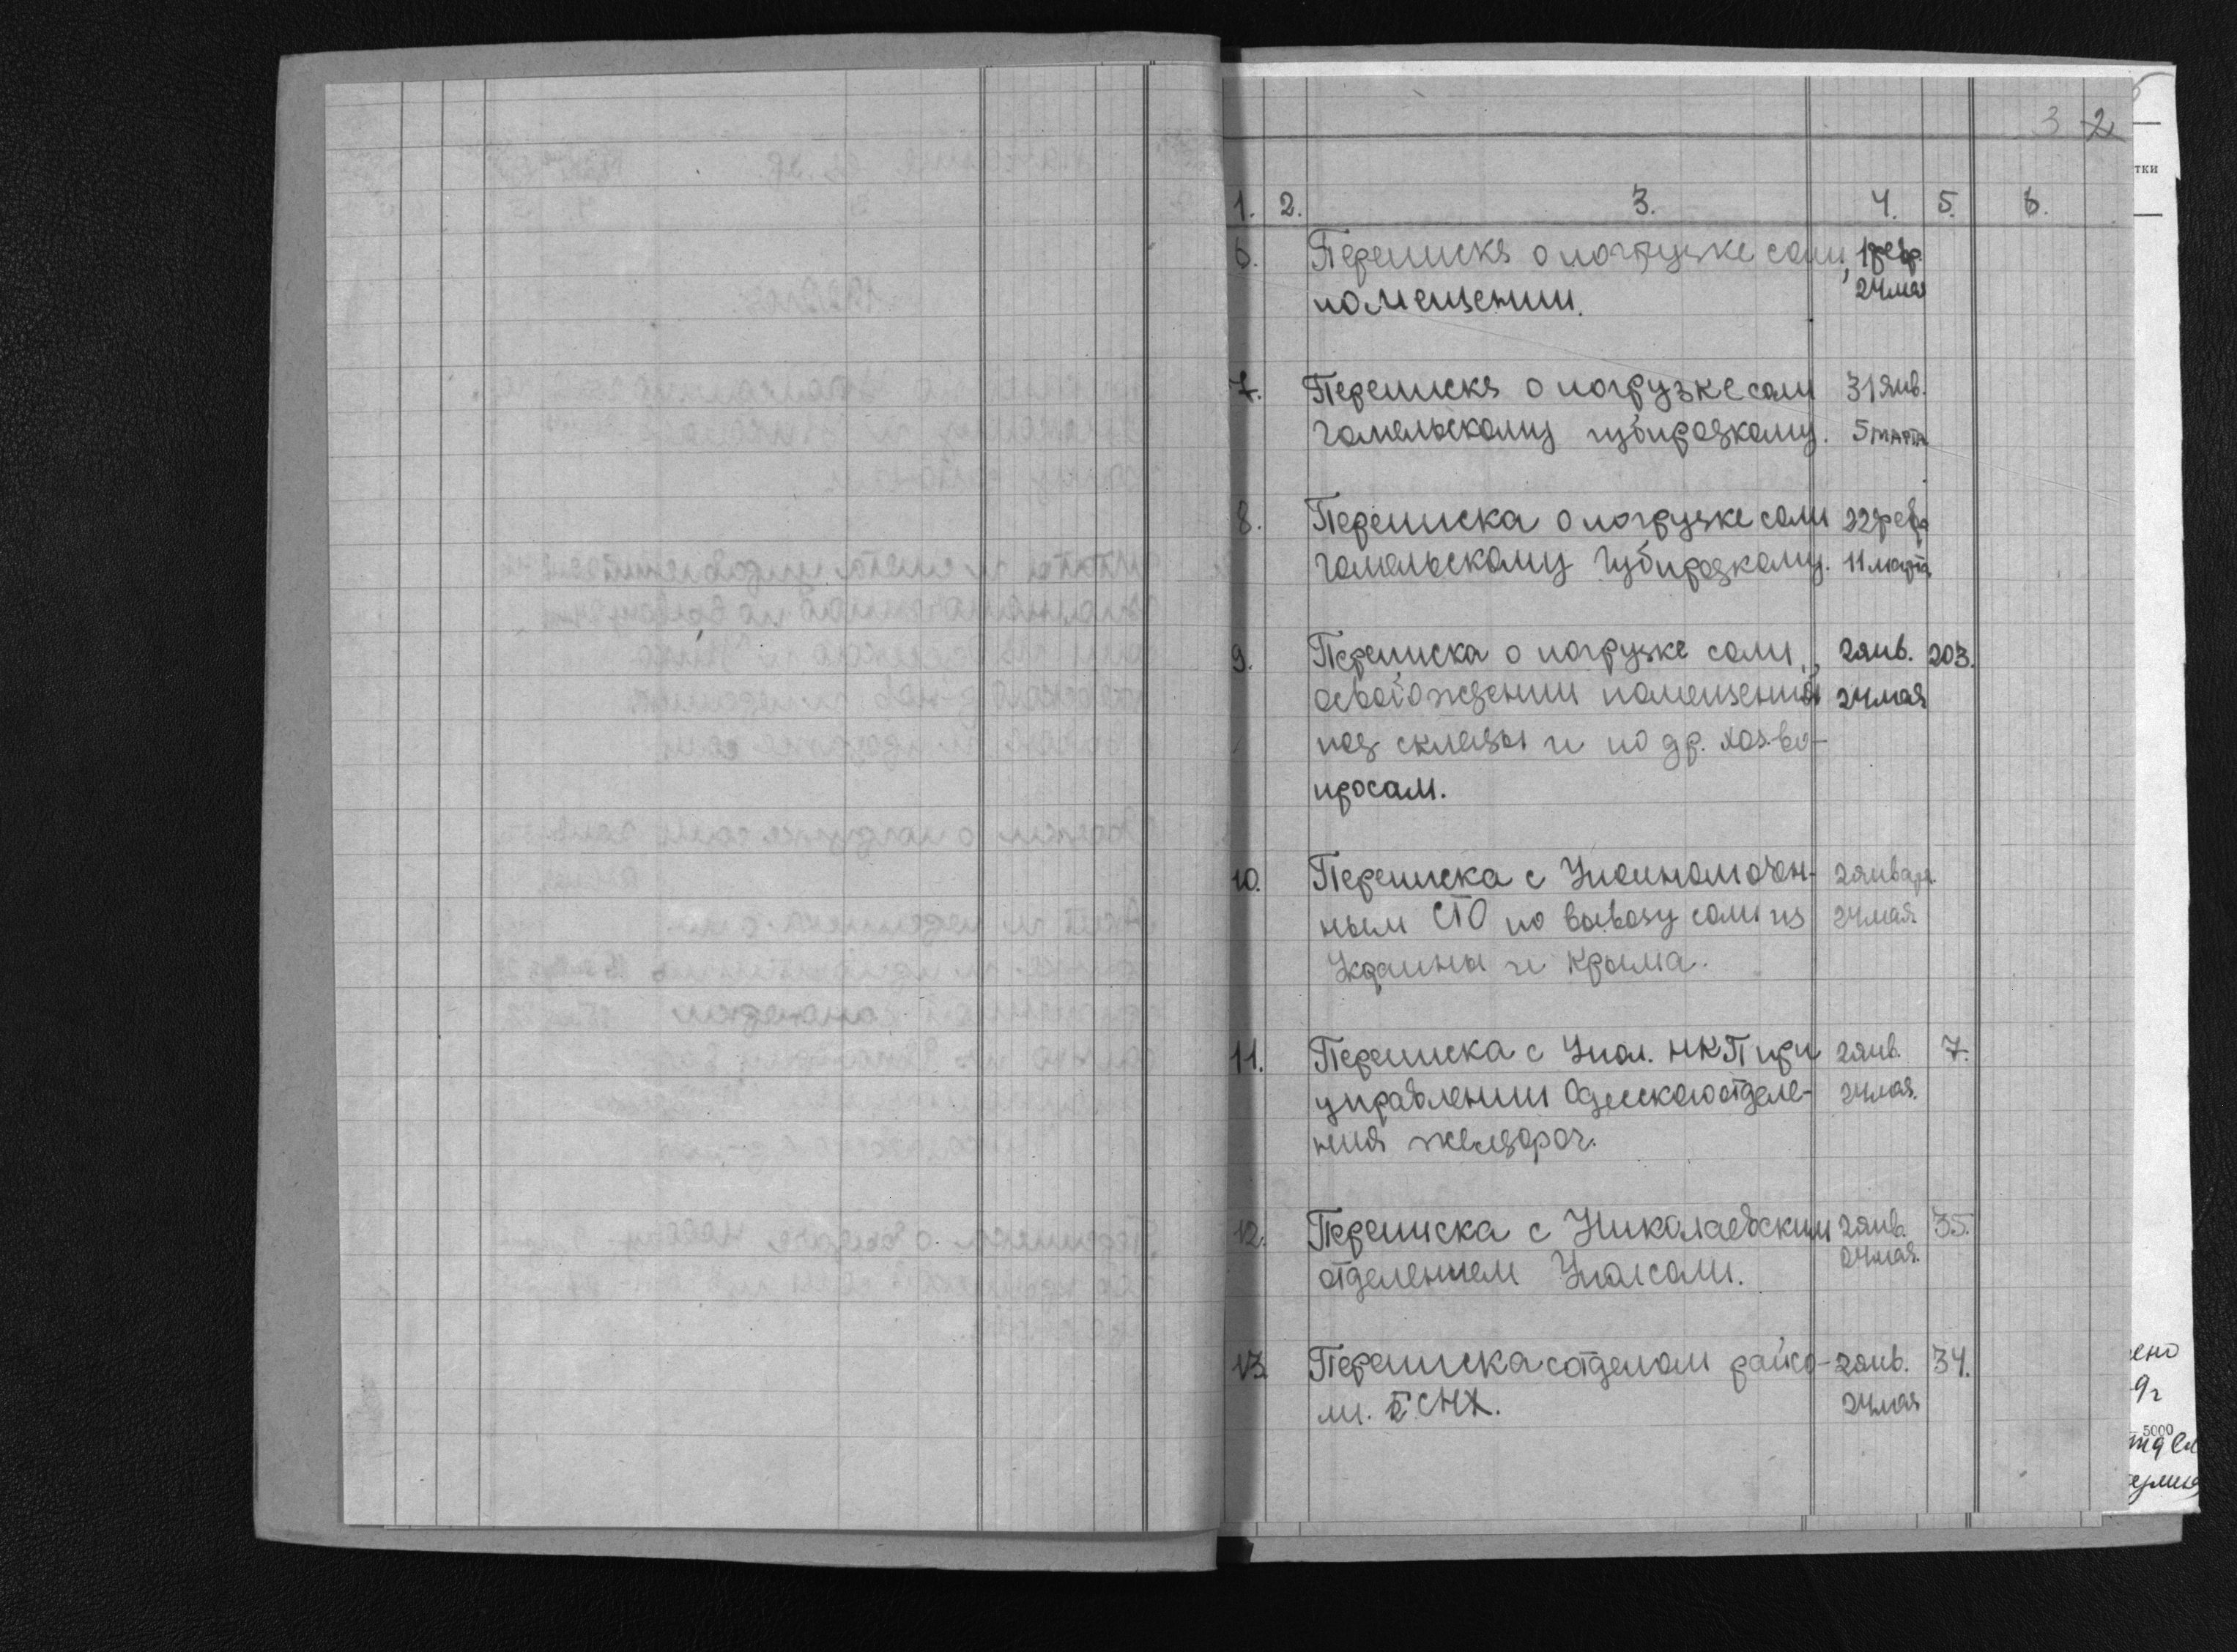 3 2
1. 2. 3. 4. 5. 6.
6. Переписка о погрузке соли, 1 февр.
помещении. 24 мая
7. Переписка о погрузке соли 31 янв.
гомельскому губпродкому. 5 марта
8. Переписка о погрузке соли 22 февр
гомельскому губпродкому. 11 марта
9. Переписка о погрузке соли, 2 янв. 203.
освобождении помещений 24 мая
под склады и по др. хоз. во-
просам.
10. Переписка с Уполномочен- 2 января
ным СТО по вывозу соли из 24 мая.
Украины и Крыма.
11. Переписка с Упол. НКП при 2 янв. 7.
управлении Одесского отделе- 24 мая.
ния желездорог.
12. Переписка с Николаевским 2 янв. 35.
отделением Уполсоли. 24 мая.
13. Переписка с отделом райсо- 2 янв. 34.
ли. СНХ. 24 мая
тки
ено
9г
5000